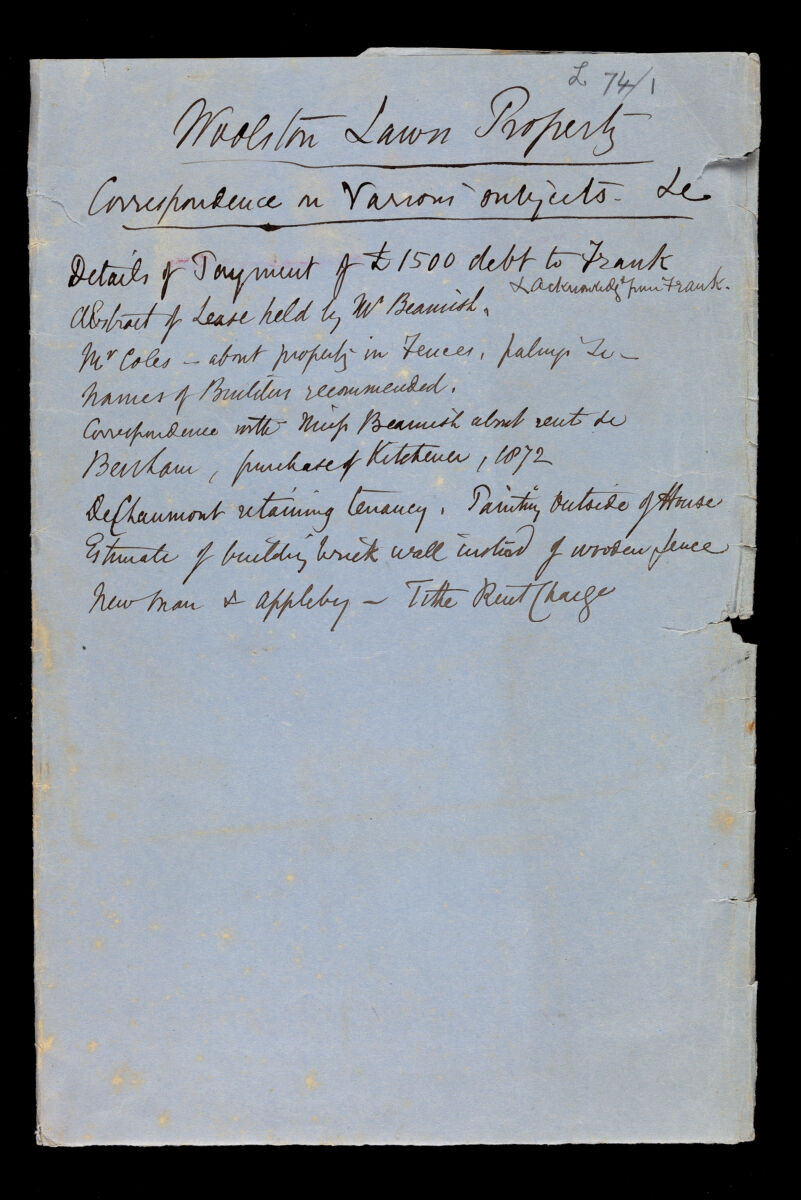 L 74/1
Woolston Lawn Property
Correspondence on Various subjects. &c
Details of Payment of £1500 debt to Frank
& Acknowledgt from Frank.
Abstract of Lease held by Mr Beamish.
Mr Coles – about property in Fences, palings &c –
Names of Builders recommended.
Correspondence with Miss Beamish about rent &c
Benham, purchase of Kitchener, 1872
DeChaumont retaining tenancy. Painting Outside of House
Estimate of building brick wall instead of wooden fence
Newman & Appleby – Tithe Rent Charge